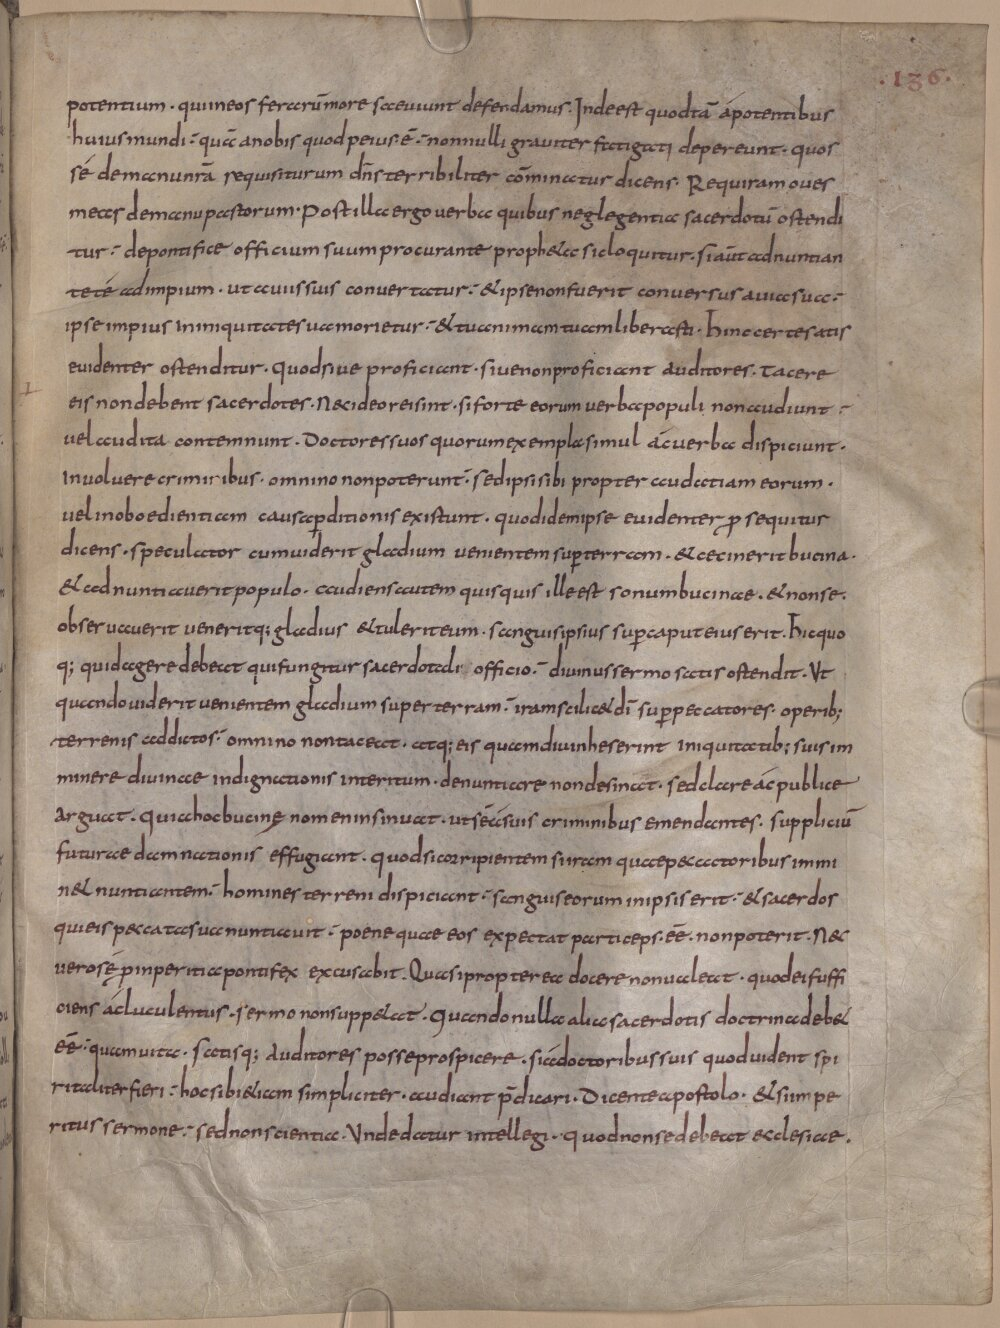 .136.
potentium · qui in eos ferarū more sæviunt defendamus. Inde est quod tā á potentibus
huius mundi · quā a nobis quod peius · ē · nonnulli graviter fatigati depereunt · quos
sé de manu nrā requisiturum dn̄s terribiliter cōminatur dicens · Requiram oves
meas de manu pastorum · Post illa ergo verba quibus neglegentia sacerdotū ostendi
tur · de pontifice officium suum procurante propheta sic loquitur · si aut́ adnuntian
te té ad impium · ut a viis suis convertatur · & ipse non fuerit conversus a via sua ·
ipse impius in iniquitate sua morietur · & tu animam tuam liberasti · hinc certe satis
evidenter ostenditur · Quod sive proficiant · sive non proficiant auditores · tacere
eis non debent sacerdotes · Nec ideo rei sint · si forte eorum verba populi non audiunt ·
vel audita contemnunt · Doctores suos quorum exempla simul ác verba dispiciunt ·
involvere criminibus · omnino non poterunt · sed ipsi sibi propter audatiam eorum ·
vel inoboedientiam causa p̱ditionis existunt · quod idem ipse evidenter p̱sequitus
dicens · speculator cum viderit gladium venientem sup̱ terram · & cecinerit bucina ·
& adnuntiaverit populo · audiens autem quisquis ille est sonum bucinae · & non se ·
observaverit veneritq; gladius & tulerit eum · sanguis ipsius sup̱ caput eius erit · hic quo
q; quid agere debeat qui fungitur sacerdotali officio · divinus sermo satis ostendit · Ut
quando viderit venientem gladium super terram · iram scilic& dī sup̱ peccatores · operib;
terrenis addictos · omnino non taceat · atq; eis quam divinheserint iniquitatib; suis im
minere divinae indignationis interitum · denuntiare non desinat · sed clare ác publice
arguat · quia hoc bucinę nomen insinuat · ut sé a suis criminibus emendantes · suppliciū
futurae damnationis effugiant · quod si corripientem si iram quae peccatoribus immi
n& nuntiantem · homines terreni dispiciant · sanguis eorum in ipsis erit · & sacerdos
qui eis peccata sua nuntiavit · poenę quae eos expectat particeps · eē · non poterit · Nec
vero sé p̱ inperitia pontifex excusabit · Quasi propterea docere non valeat · quod ei suffi
ciens ác luculentus · sermo non supp&at · Quando nulla alia sacerdotis doctrina deb&
eē · quam vita · satisq; auditores posse prospicere · si a doctoribus suis quod vident spi
ritaliter fieri · hoc sibi &iam simpliciter · audiant p̄dicari · Dicente apostolo · & si inpe
ritus sermone · sed non scientia · Unde datur intellegi · quod non se debeat ecclesiae ·